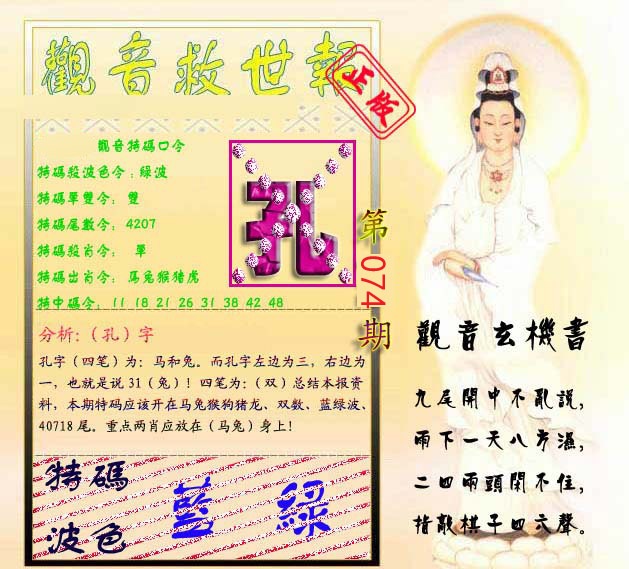 觀音救世報
正版
觀音特碼口令
特碼殺波色令:綠波
特碼單雙令: 雙
特碼尾數令: 4207
特碼殺肖令: 單
特碼出肖令: 馬兔猴猪虎
特中碼令: 11 18 21 26 31 38 42 48
孔
第
074
期
分析:(孔)字
孔字(四笔)为: 马和兔。而孔字左边为三, 右边为
一, 也就是说 31(兔)! 四笔为:(双)总结本报资
料, 本期特码应该开在马兔猴狗猪龙、双数、蓝绿波、
40718 尾。重点两肖应放在(马兔)身上!
特碼
波色
藍 綠
觀音玄機書
九尾開中不亂說,
兩下一天八方濕,
二四兩頭閑不住,
指敲棋子四六聲。